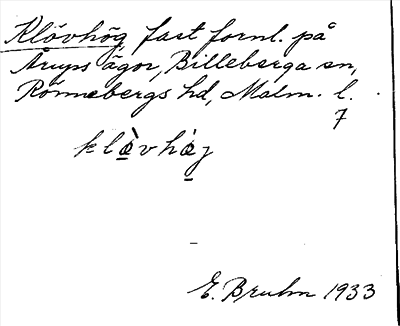 Klövhög, fast fornl. på
Årups ägor, Billeberga sn,
Rönnebergs hd, Malm. l.
7
klö̀vhö̀j
E. Bruhn 1933